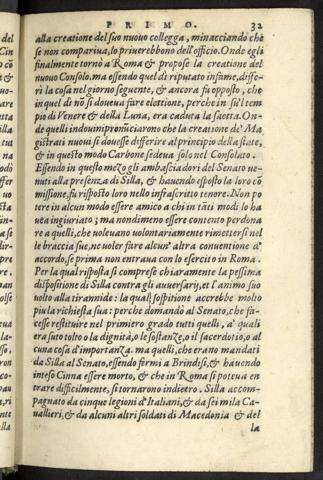 PRIMO. 32
alla creatione del suo nuouo collega, minacciando che
se non compariua, lo priuerebbono dell'officio. Onde egli
finalmente tornò a Roma & propose la creatione del
nuouo Consolo. ma essendo quel dì riputato infame, diffe-
rì la cosa nel giorno seguente, & ancora fu opposto, che
in quel dì nō si doueua fare elettione, perche in sù'l tem
pio di Venere & della Luna, era caduta la saetta. On-
de quelli indouini pronūciarono che la creatione de' Ma
gistrati nuoui si douesse differire al principio della state,
& in questo modo Carbone sedeua solo nel Consolato.
Essendo in questo mezo gli ambasciadori del Senato ue-
nuti alla presenza di Silla, & hauendo esposta la loro cō
missione, fu risposto loro nello infrascritto tenore. Non po
tere in alcun modo essere amico a chi in tāti modi lo ha
uea ingiuriato; ma nondimeno essere contento perdona
re a quelli, che uoleuano volontariamente rimettersi nel
le braccia sue, ne uoler fare alcun' altra conuentione ò
accordo, se prima non entraua con lo esercito in Roma.
Per la qual risposta si comprese chiaramente la pessima
dispositione di Silla contra gli auuersarij, et l'animo suo
volto alla tirannide: la qual sospitione accrebbe molto
piu la richiesta sua: perche domandò al Senato, che fa-
cesse restituire nel primiero grado tutti quelli, a' quali
era suto tolto o la dignità, o le sostanze, o il sacerdotio, o al
cuna cosa d'importanza. ma quelli, che erano mandati
da Silla al Senato, essendo fermi a Brindisi, & hauendo
inteso Cinna essere morto, & che in Roma si poteua en
trare difficilmente, si tornarono indietro. Silla accom-
pagnato da cinque legioni d'Italiani, & da sei mila Ca-
uallieri, & da alcuni altri soldati di Macedonia & del
la